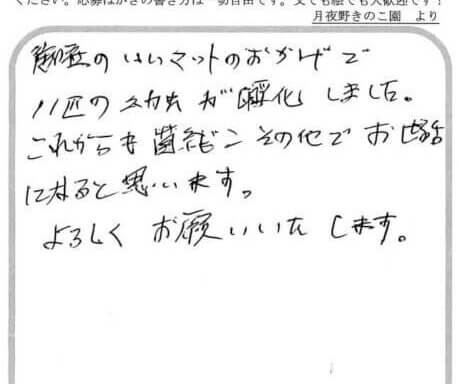 ください。応募はがきの書き方は一切自由です。文でも絵でも大歓迎です！
月夜野きのこ園 より
のおかげで
11匹の幼虫が孵化しました。
これからも菌糸ビンその他でお世話
になると思います。
よろしくお願いいたします。